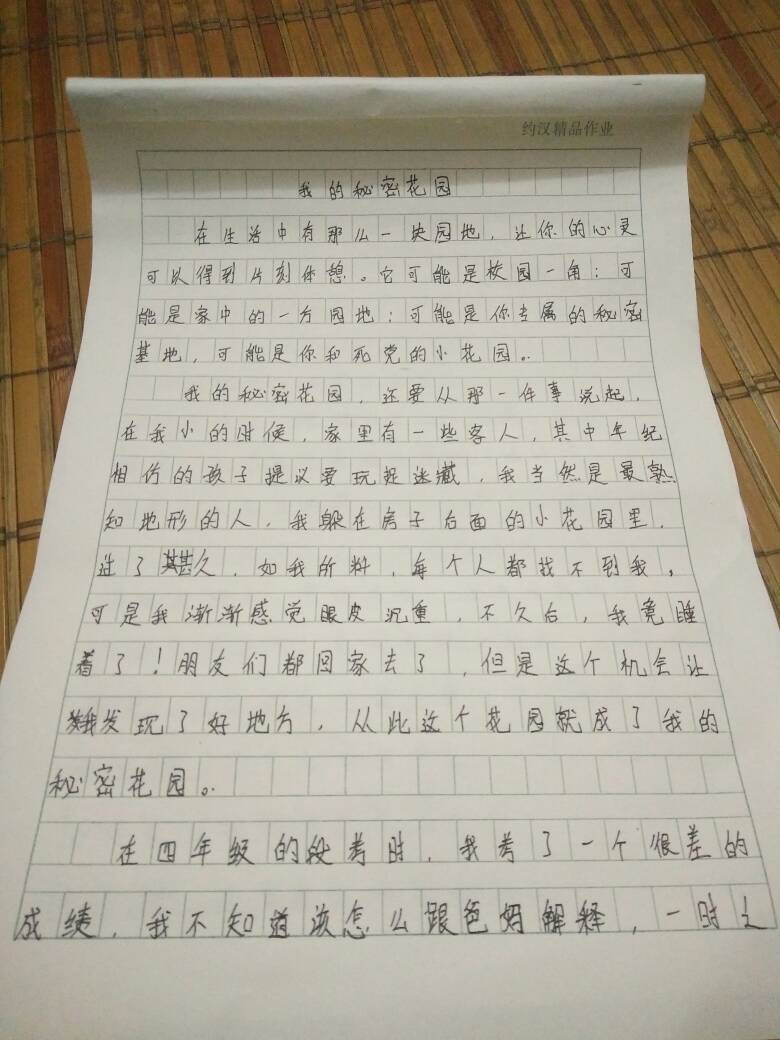 约汉精品作业
我的秘密花园
在生活中有那么一块园地，让你的心灵
可以得到片刻休憩。它可能是校园一角；可
能是家中的一方园地；可能是你专属的秘密
基地，可能是你和死党的小花园。
我的秘密花园，还要从那一件事说起，
在我小的时候，家里有一些客人，其中年纪
相仿的孩子提议要玩捉迷藏，我当然是最熟
知地形的人，我躲在房子后面的小花园里，
过了甚久，如我所料，每个人都找不到我，
可是我渐渐感觉眼皮沉重，不久后，我竟睡
着了！朋友们都回家去了，但是这个机会让
我发现了好地方，从此这个花园就成了我的
秘密花园。
在四年级的段考时，我考了一个很差的
成绩，我不知道该怎么跟爸妈解释，一时之